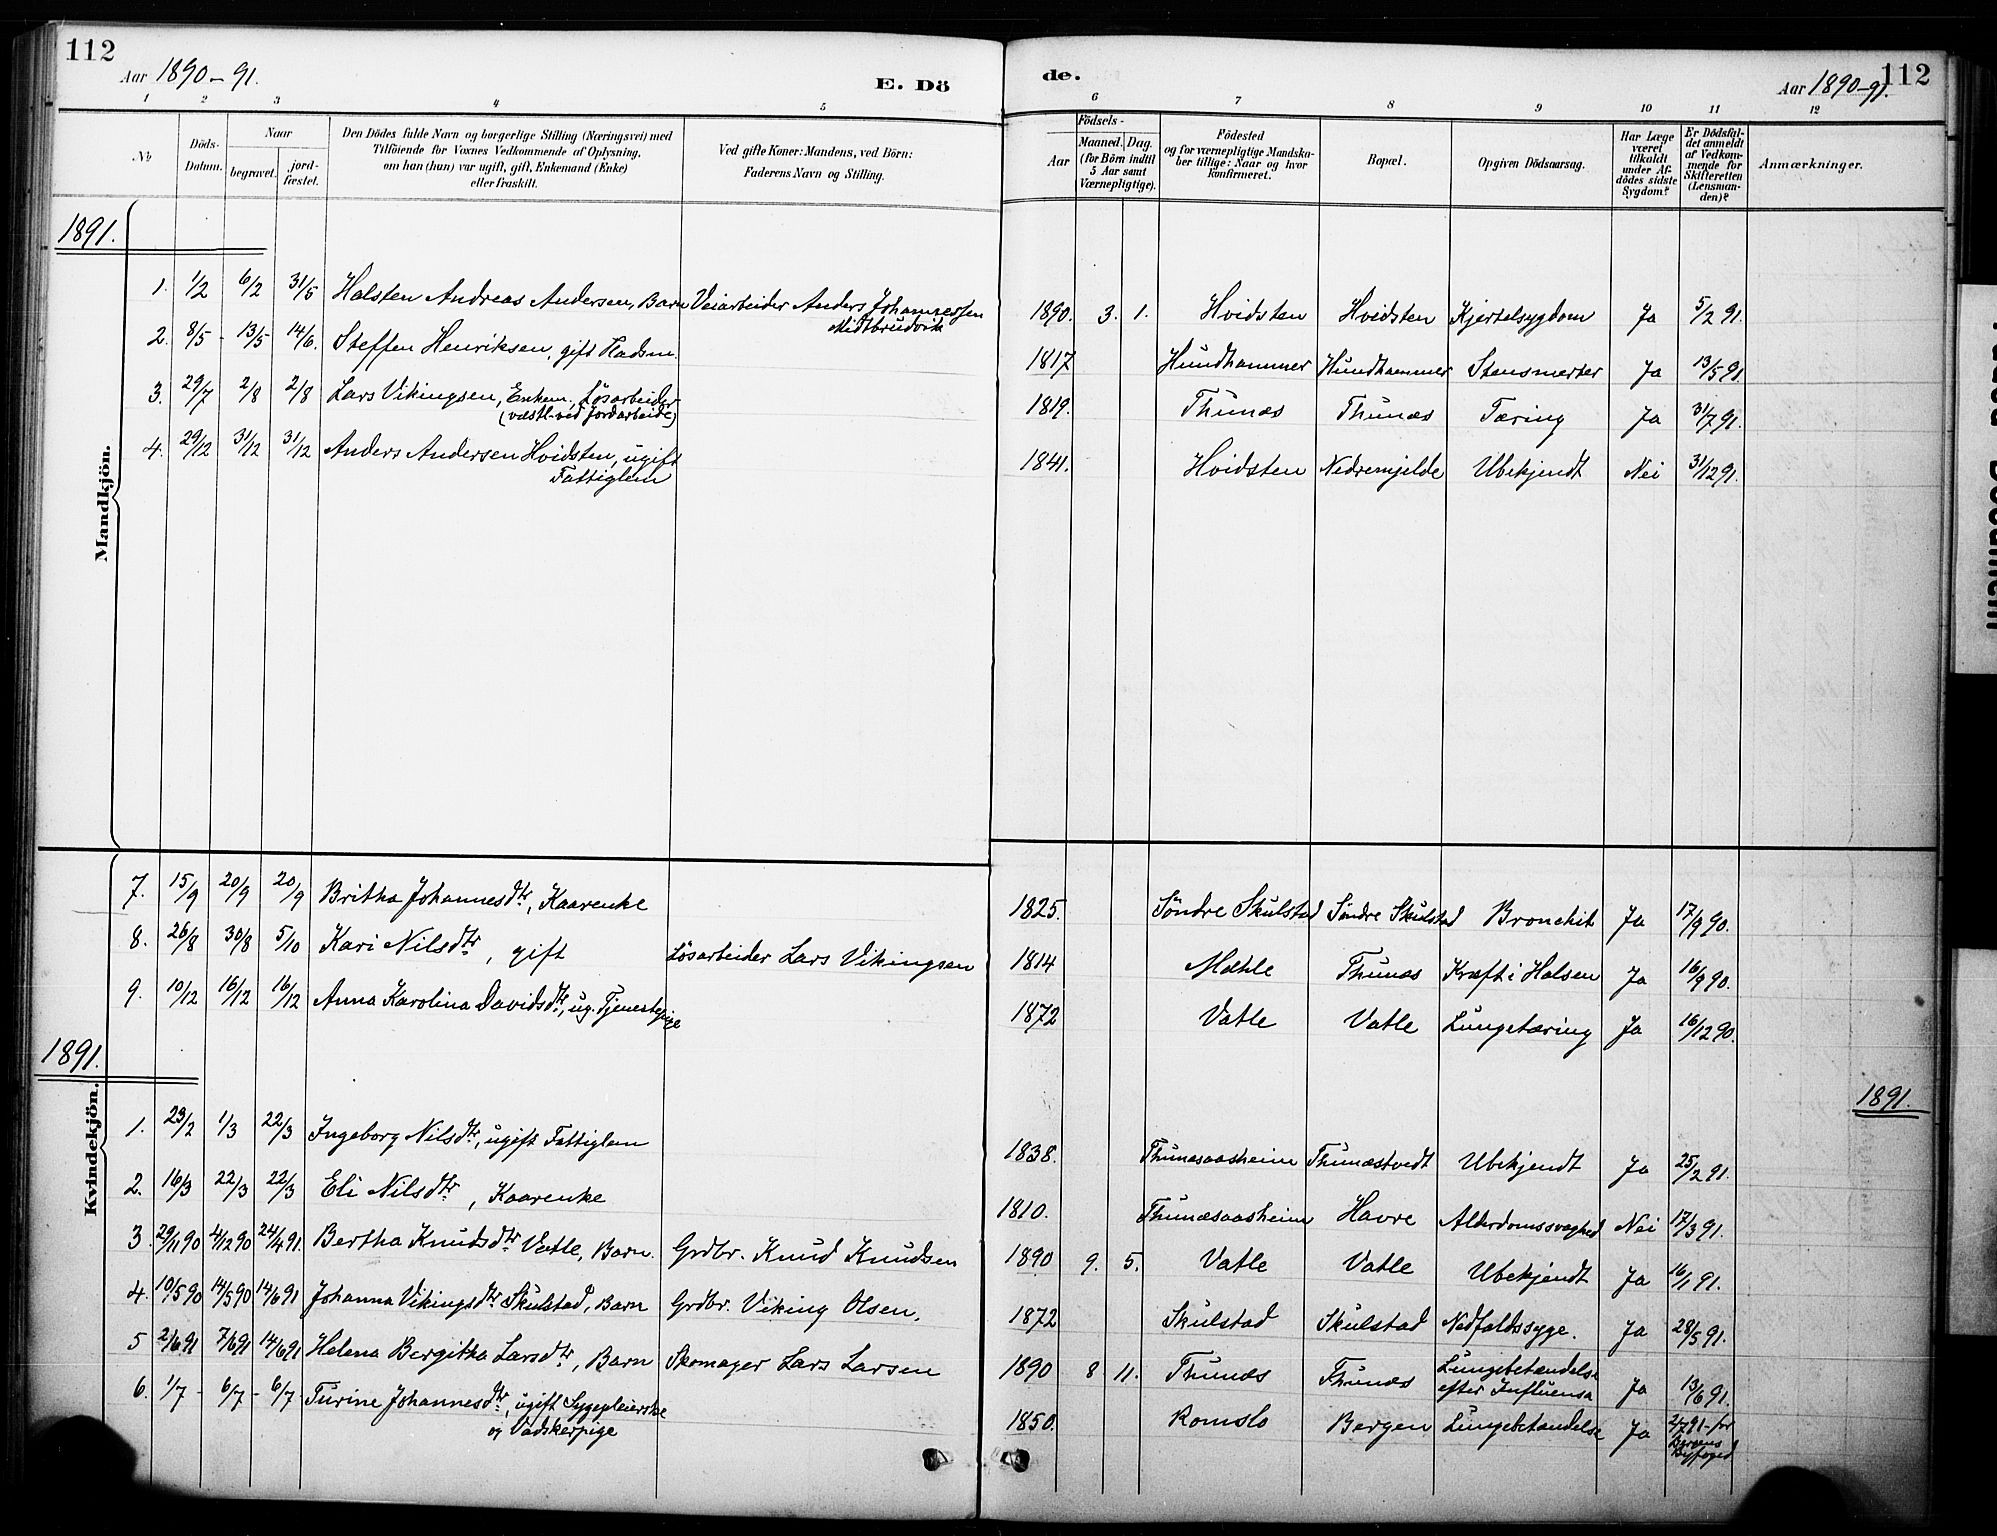 112
Aar 1890-91.
E. Dö
de.
Aar 1890-91.
112
1 2 3 4 5 6 7 8 9 10 11 12
No
Döds-Datum.
Naar
begravet.
jordfæstet.
Den Dödes fulde Navn og borgerlige Stilling (Næringsvei) med
Tilföiende for Voxnes Vedkommende af Oplysning,
om han (hun) var ugift, gift, Enkemand (Enke)
eller fraskilt.
Ved gifte Koner: Mandens, ved Börn:
Faderens Navn og Stilling.
Födsels-
Aar
Maaned. Dag.
(for Börn indtil
5 Aar samt
Værnepligtige).
Födested
og for værnepligtige Mandska-
ber tillige: Naar og hvor
konfirmeret.
Bopæl.
Opgiven Dödsaarsag.
Har Læge
været
tilkaldt
under Af-
dödes sidste
Sygdom?
Er Dödsfal-
det anmeldt
af Vedkom-
mende for
Skifteretten
(Lensman-
den)?
Anmærkninger.
1891.
Mandkjön.
1. 1/2 6/2 31/5 Halsten Andreas Andersen, Barn Veiarbeider Anders Johannessen
Midtbrudvik
1890. 3. 1. Hvidsten Hvidsten Kjertelsygdom Ja 5/2 91.
2. 8/5 - 13/5 14/6. Steffen Henriksen, gift Kadsm.
1817 Hundhammer Hundhammer Stensmerter Ja 13/5 91.
3. 29/7 2/8 2/8 Lars Vikingsen, Enkem. Løsarbeider
(væstl. ved Jordarbeide)
1819. Thunæs Thunæs Tæring Ja 31/7 91.
4. 29/12 31/12 31/12 Anders Andersen Hvidsten, ugift
Fattiglem
1841. Hvidsten Nedremjelde Ubekjendt Nei 31/12 91.
Kvindekjön.
7. 15/9 20/9 20/9 Britha Johannesdtr, Kaarenke
1825. Søndre Skulstad Søndre Skulstad Bronchit Ja 17/9 90.
8. 26/8 30/8 5/10 Kari Nilsdtr, gift Løsarbeider Lars Vikingsen
1814 Mæhle Thunæs Kræft i Halsen Ja 16/9 90.
9. 10/12 16/12 16/12 Anna Karolina Davidsdtr, ug. Tjenestepige
1872 Vatle Vatle Lungetæring Ja 16/12 90.
1891.
1891.
1. 23/2 1/3 22/3 Ingeborg Nilsdtr, ugift Fattiglem
1838. Thunæsaasheim Thunæstvedt Ubekjendt Ja 25/2 91.
2. 16/3 22/3 22/3 Eli Nilsdtr, Kaarenke
1810. Thunæsaasheim Havre Alderdomssvaghed Nei 17/3 91.
3. 29/11 90 4/12 90 24/4 91. Bertha Knudsdtr Vatle, Barn. Grdbr. Knud Knudsen
1890 9. 5. Vatle Vatle Ubekjendt Ja 16/1 91.
4. 10/5 90 14/5 90 14/6 91 Johanna Vikingsdtr Skulstad, Barn Grdbr. Viking Olsen.
1872 Skulstad Skulstad Nedfaldssyge. Ja 28/5 91.
5 2/6 91 7/6 91 14/6 91 Helena Bergitha Larsdtr, Barn Skomager Lars Larsen
1890 8 11. Thunæs Thunæs Lungebetændelse
efter Influensa Ja 13/6 91.
6. 1/7 - 6/7 - 6/7 Turine Johannesdtr, ugift Sygepleierske
og Vadskerpige
1850. Romslo Bergen Lungebetændelse Ja 2/7 91 - for
Bergens
Byfoged